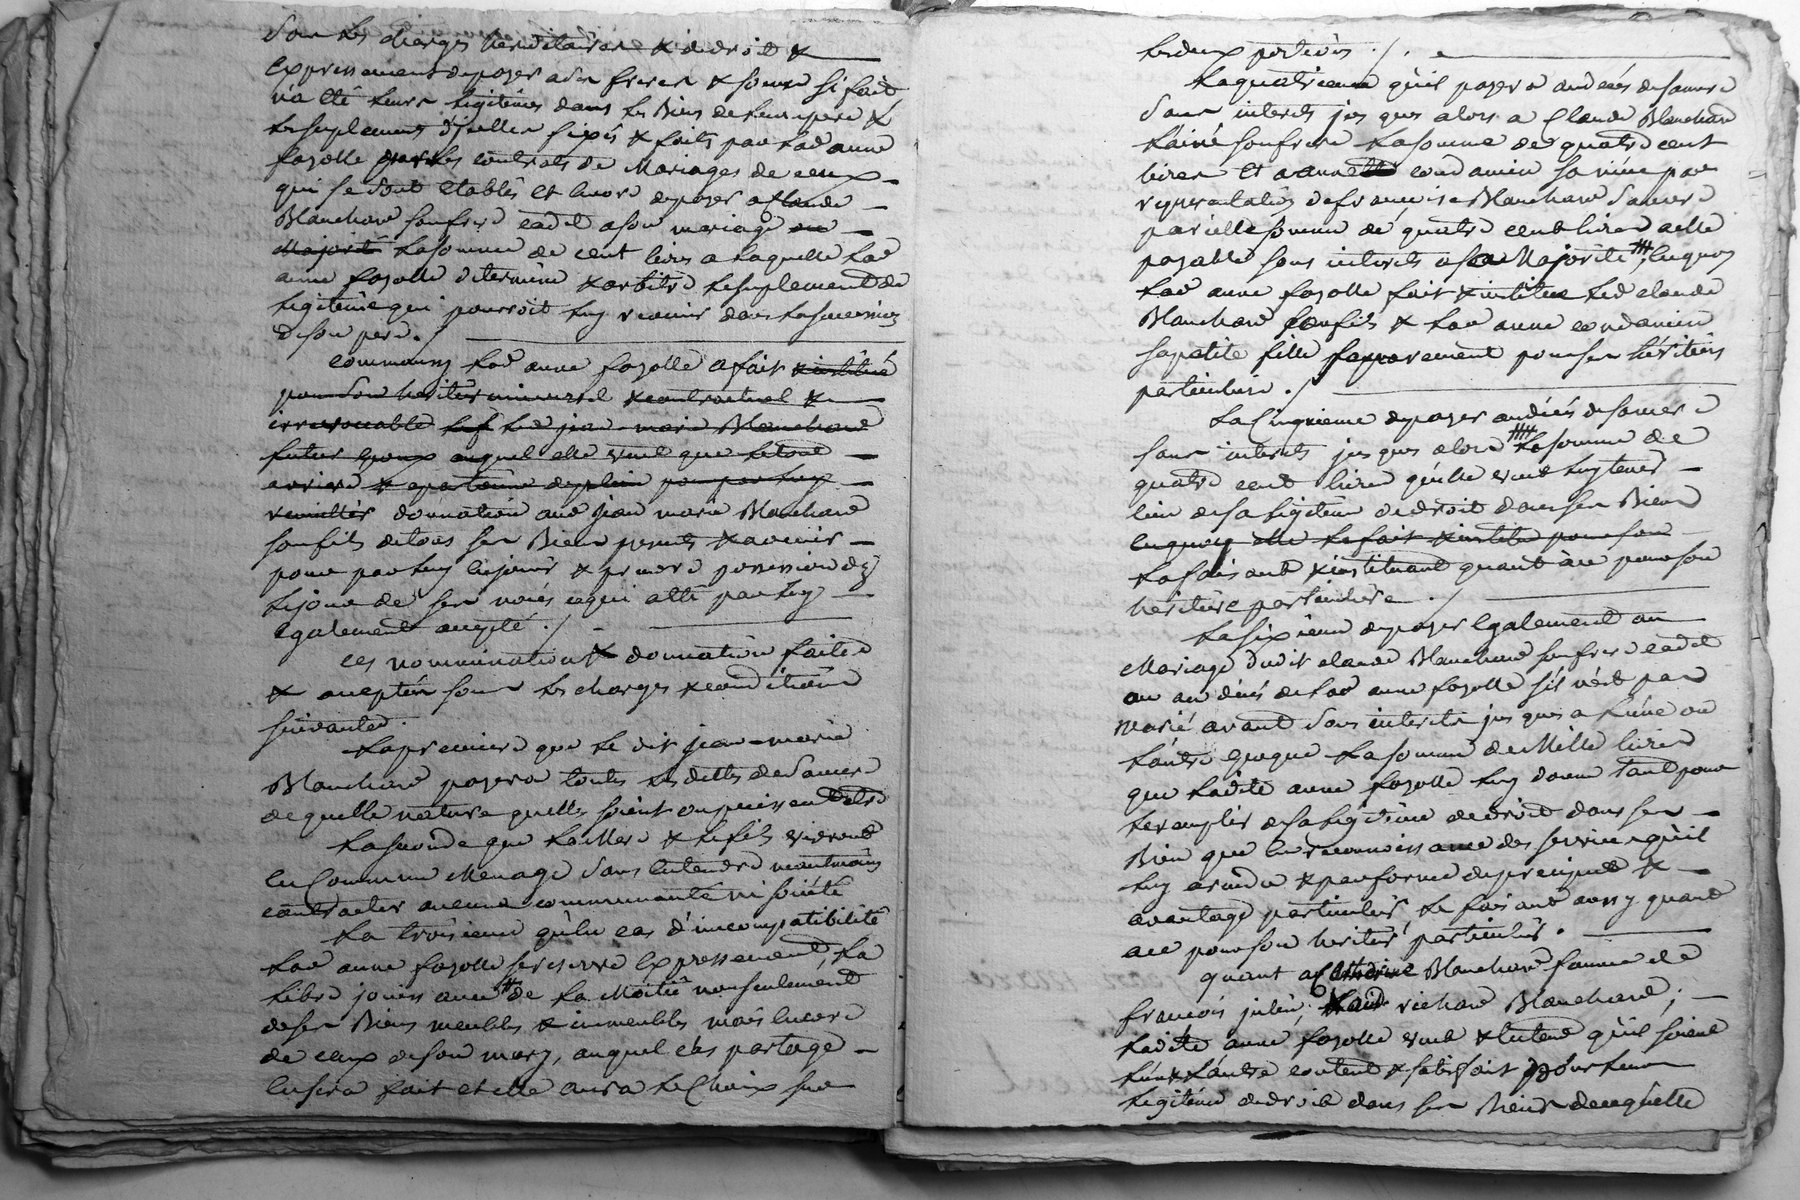 Sous les charges hereditaires & de droit &
Expressement de payer a ses freres & soeurs si fait
n'a été leurs legitimes dans les Biens de leur pere &
les suplements d'jcelles fixés & faits par lad anne
fayolle par les contrats de Mariages de ceux
qui se sont etablis et encore de payer a Claude
Blanchard son frere cadet a son mariage ou
Majorité la somme de cent livres a laquelle lad
anne fayolle determine & arbitre le suplement de
legitime qui pourroit luy revenir dans la succession
de son pere ./
comme aussy lad anne fayolle a fait & institué
pour son heritier universel & contractuel &
irrevocable led jean marie Blanchard
futur Epoux auquel elle veut que le tout
arrive & apartienne de plein pour par luy
recueillir donnation aud jean marie Blanchard
son fils de tous ses Biens presents & a venir
pour par luy en jouir & prendre possession dez
le jour de ses noces ce qui a été par luy
Egalement accepté ./
ces nomination & donnation faites
& acceptées sous les charges & conditions
suivantes.
La premiere que le dit jean-marie
Blanchard payera toutes les dettes de Sa mere
de quelle nature quelles soient ou puissent etre
La seconde que la Mere & le fils vivront
En Commun Menage Sans entendre neantmoins
contracter aucune communauté ni société
La troisieme qu'en cas d'incompatibilité
lad anne fayolle se reserve Expressement, la
libre jouissance # de la Moitié non seulement
de ses Biens meubles & immeubles mais encore
de ceux de son mary, auquel cas partage
en sera fait et elle aura le Choix sur
les deux portions ./.
La quatrieme qu'il payera au decés de sa mere
Sans interets jus ques alors a Claude Blanchard
l'ainé son frere la somme de quatre cent
livres Et a anne condamin sa niece par
representation de françoise Blanchard Sa mere
pareille somme de quatre cent livres a elle
payable sans interets a sa Majorité ###, En quoy
lad anne fayolle fait & institue led claude
Blanchard son fils & lad anne condamin
sa petite fille separement pour ses héritiers
particuliers ./
La Cinquieme de payer au décés de sa mere
sans interets jus ques alors #### la somme de
quatre cent livres qu'elle veut luy tenir
lieu de sa legitime de droit dans ses Biens
en quoy elle la fait & institue pour son
la faisant & instituant quant a ce pour son
héritiere particuliere ./
La sixieme de payer Egalement au
Mariage dudit claude Blanchard son frere cadet
ou au décés de lad anne fayolle s'il n'est pas
marié avant Sans interets jus ques a l'une ou
l'autre Epoque la somme de Mille livres
que ladite anne fayolle luy donne tant pour
le remplir de sa legitime de droit dans ses
Biens que en reconnoissance des services qu'il
luy a rendu & par forme de preciput &
avantage particulier, le faisant aussy quant
a ce pour son heritier particulier.
quant a Catherine Blanchard femme de
françois julien, & aud richard Blanchard,
ladite anne fayolle veut & entend qu'ils soient
l'un & l'autre content & satisfait pour leur
legitime de droit dans ses Biens de ce qu'elle